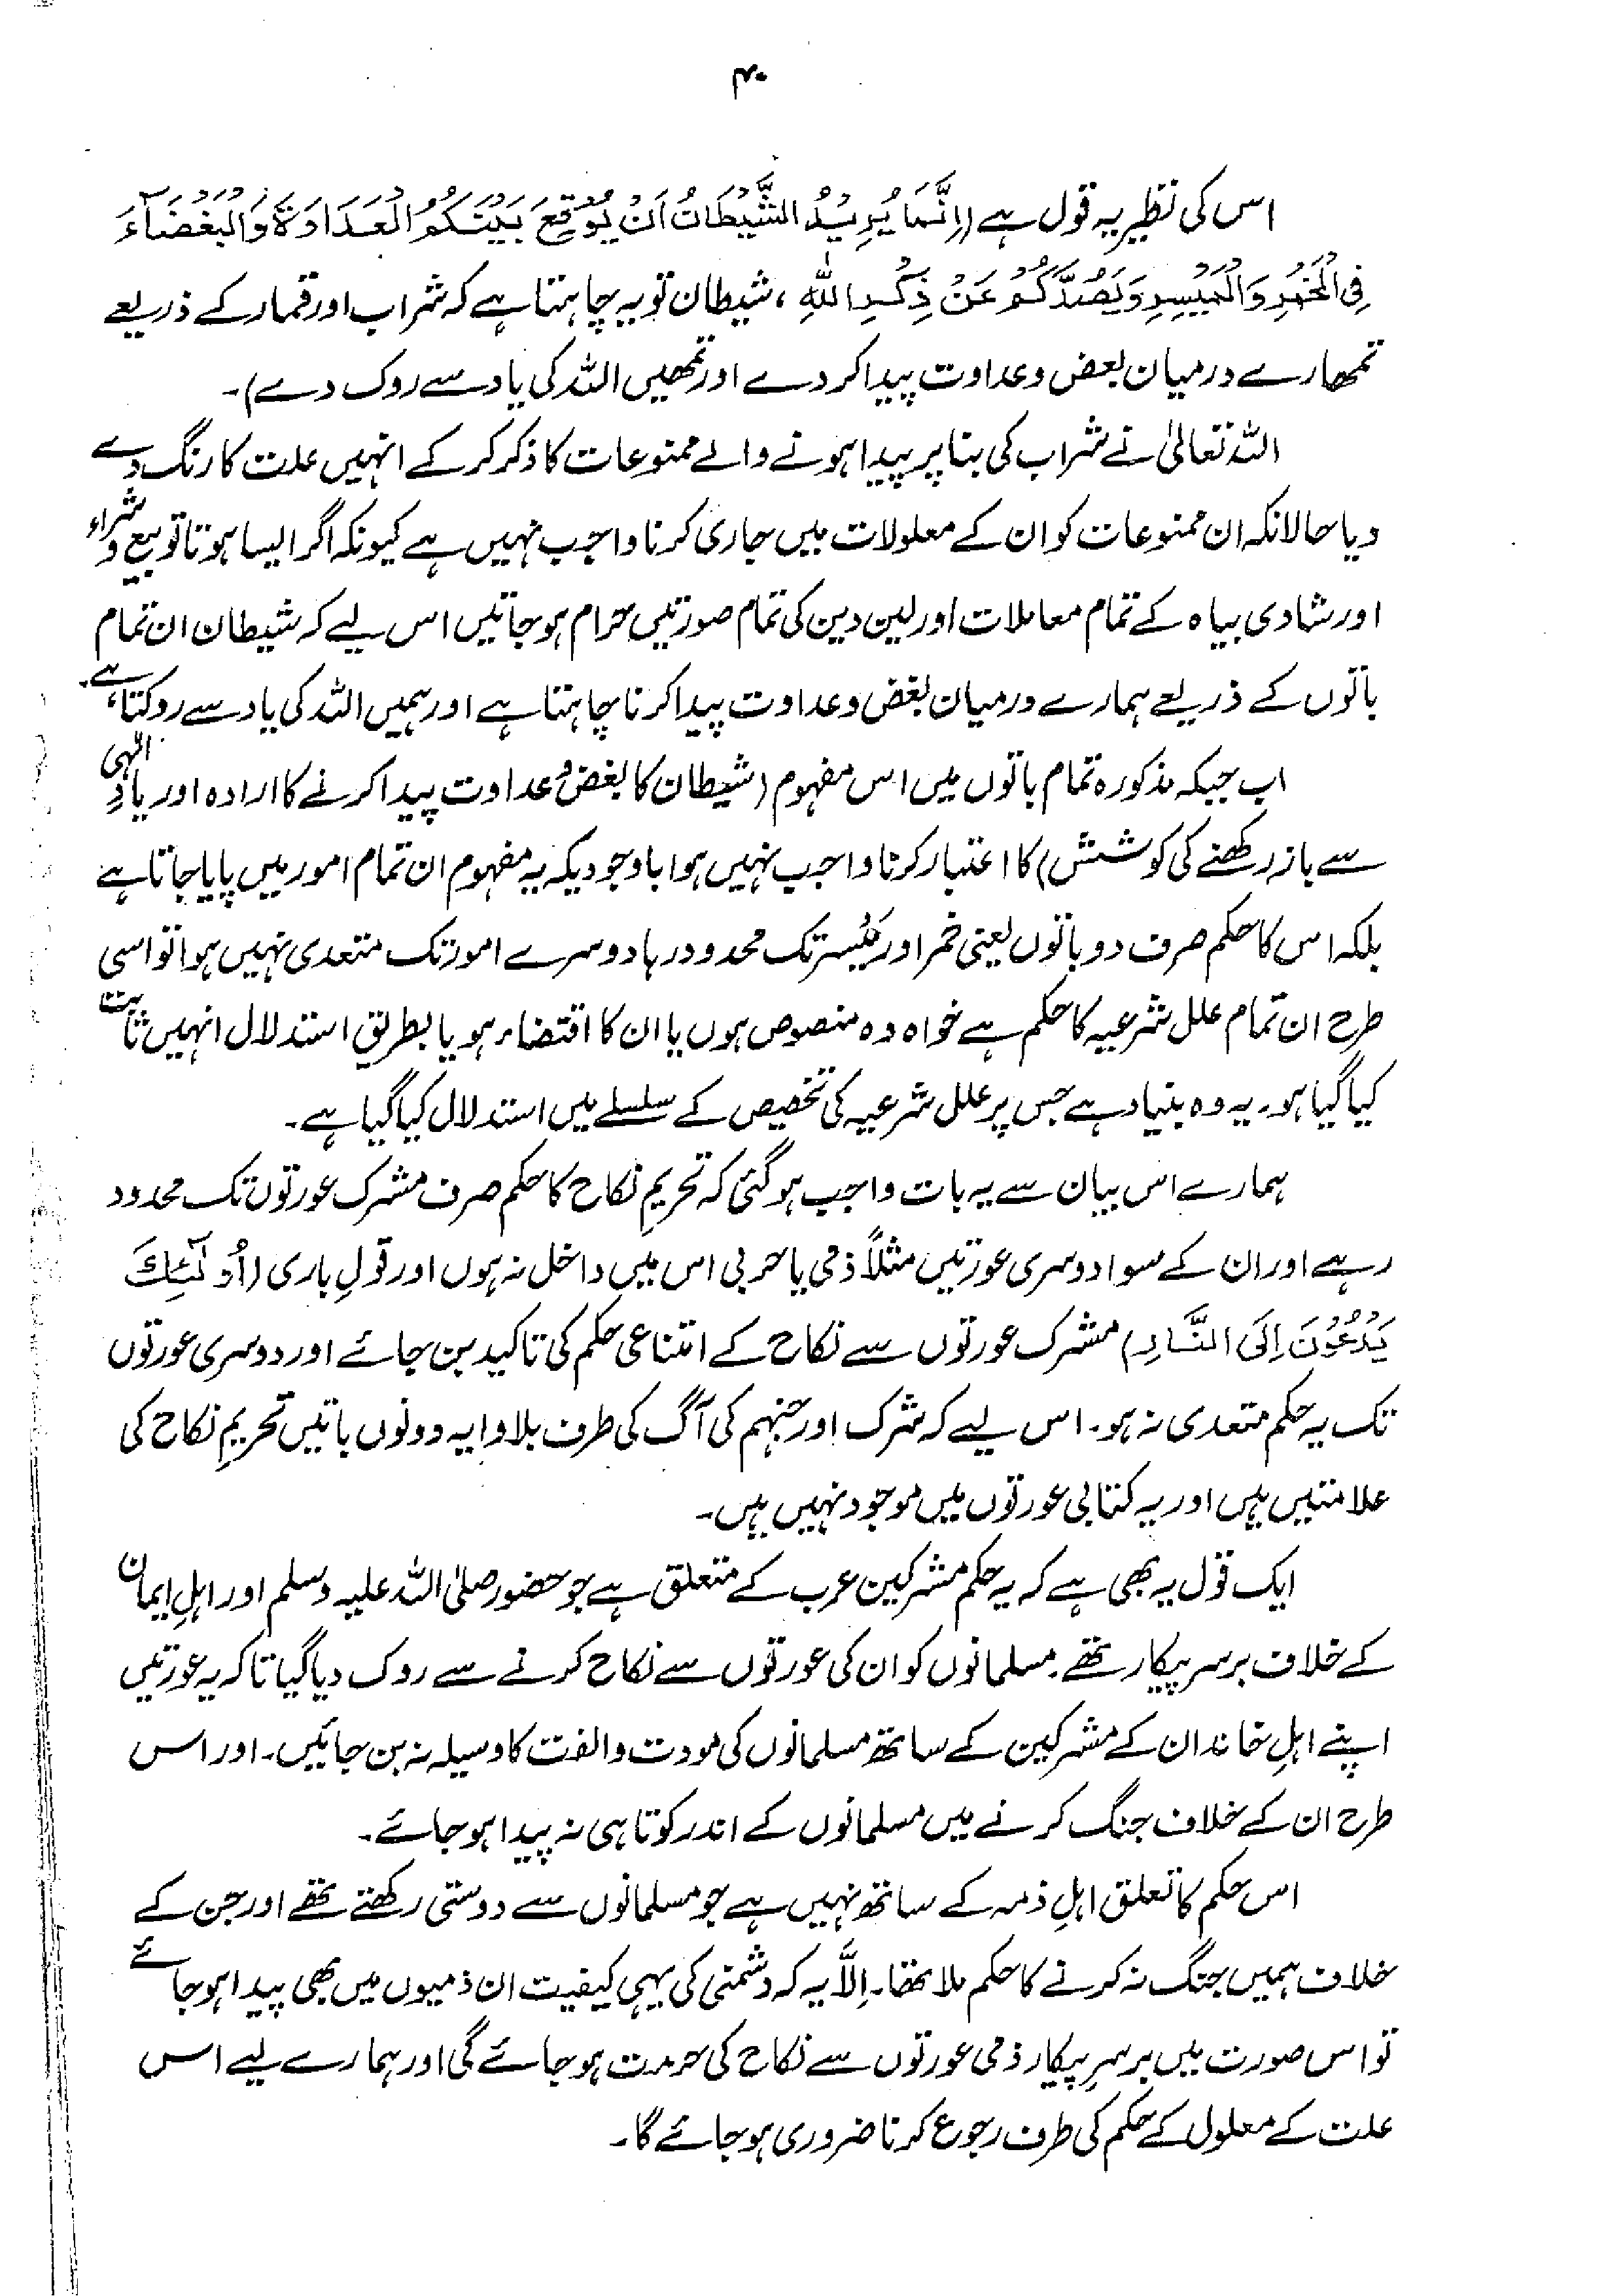 ۴۰
اس کی نظیر یہ قول ہے (اِنَّمَا يُرِيْدُ الشَّيْطَانُ اَنْ يُّوْقِعَ بَيْنَكُمُ الْعَدَاوَةَ وَالْبَغْضَآءَ
فِی الْخَمْرِ وَالْمَيْسِرِ وَيَصُدَّكُمْ عَنْ ذِكْرِ اللّٰهِ ، شیطان تو یہ چاہتا ہے کہ شراب اور قمار کے ذریعے
تمھارے درمیان بعض و عداوت پیدا کر دے اور تمھیں اللہ کی یاد سے روک دے)۔
اللہ تعالیٰ نے شراب کی بنا پر پیدا ہونے والے ممنوعات کا ذکر کر کے انہیں علت کا رنگ دے
دیا حالانکہ ان ممنوعات کو ان کے معلولات میں جاری کرنا واجب نہیں ہے کیونکہ اگر ایسا ہوتا تو بیع و شراء
اور شادی بیاہ کے تمام معاملات اور لین دین کی تمام صورتیں حرام ہو جاتیں اس لیے کہ شیطان ان تمام
باتوں کے ذریعے ہمارے درمیان بغض و عداوت پیدا کرنا چاہتا ہے اور ہمیں اللہ کی یاد سے روکتا ہے۔
اب جبکہ مذکورہ تمام باتوں میں اس مفہوم (شیطان کا بغض و عداوت پیدا کرنے کا ارادہ اور یادِ الٰہی
سے باز رکھنے کی کوشش) کا اعتبار کرنا واجب نہیں ہوا باوجودیکہ یہ مفہوم ان تمام امور میں پایا جاتا ہے
بلکہ اس کا حکم صرف دو باتوں یعنی خمر اور مَیْسر تک محدود رہا دوسرے امور تک متعدی نہیں ہوا تو اسی
طرح ان تمام علل شرعیہ کا حکم ہے خواہ وہ منصوص ہوں یا ان کا اقتضاء ہو یا بطریق استدلال انہیں ثابت
کیا گیا ہو۔ یہ وہ بنیاد ہے جس پر علل شرعیہ کی تخصیص کے سلسلے میں استدلال کیا گیا ہے۔
ہمارے اس بیان سے یہ بات واجب ہو گئی کہ تحریمِ نکاح کا حکم صرف مشرک عورتوں تک محدود
رہے اور ان کے سوا دوسری عورتیں مثلاً ذمی یا حربی اس میں داخل نہ ہوں اور قولِ باری (اُولٰٓئِكَ
يَدْعُوْنَ اِلَى النَّارِ) مشرک عورتوں سے نکاح کے امتناعی حکم کی تاکید بن جائے اور دوسری عورتوں
تک یہ حکم متعدی نہ ہو۔ اس لیے کہ شرک اور جہنم کی آگ کی طرف بلاوا یہ دونوں باتیں تحریمِ نکاح کی
علامتیں ہیں اور یہ کتابی عورتوں میں موجود نہیں ہیں۔
ایک قول یہ بھی ہے کہ یہ حکم مشرکین عرب کے متعلق ہے جو حضور صلی اللہ علیہ وسلم اور اہلِ ایمان
کے خلاف برسر پیکار تھے۔ مسلمانوں کو ان کی عورتوں سے نکاح کرنے سے روک دیا گیا تاکہ یہ عورتیں
اپنے اہلِ خاندان کے مشرکین کے ساتھ مسلمانوں کی مودت و الفت کا وسیلہ نہ بن جائیں۔ اور اس
طرح ان کے خلاف جنگ کرنے میں مسلمانوں کے اندر کوتاہی نہ پیدا ہو جائے۔
اس حکم کا تعلق اہلِ ذمہ کے ساتھ نہیں ہے جو مسلمانوں سے دوستی رکھتے تھے اور جن کے
خلاف ہمیں جنگ نہ کرنے کا حکم ملا تھا۔ اِلَّا یہ کہ دشمنی کی یہی کیفیت ان ذمیوں میں بھی پیدا ہو جائے
تو اس صورت میں برسرِ پیکار ذمی عورتوں سے نکاح کی حرمت ہو جائے گی اور ہمارے لیے اس
علت کے معلول کے حکم کی طرف رجوع کرنا ضروری ہو جائے گا۔